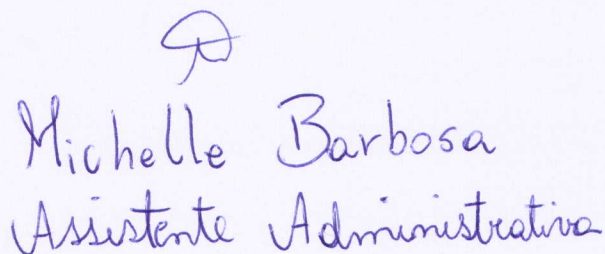 Michelle Barbosa
Assistente Administrativa